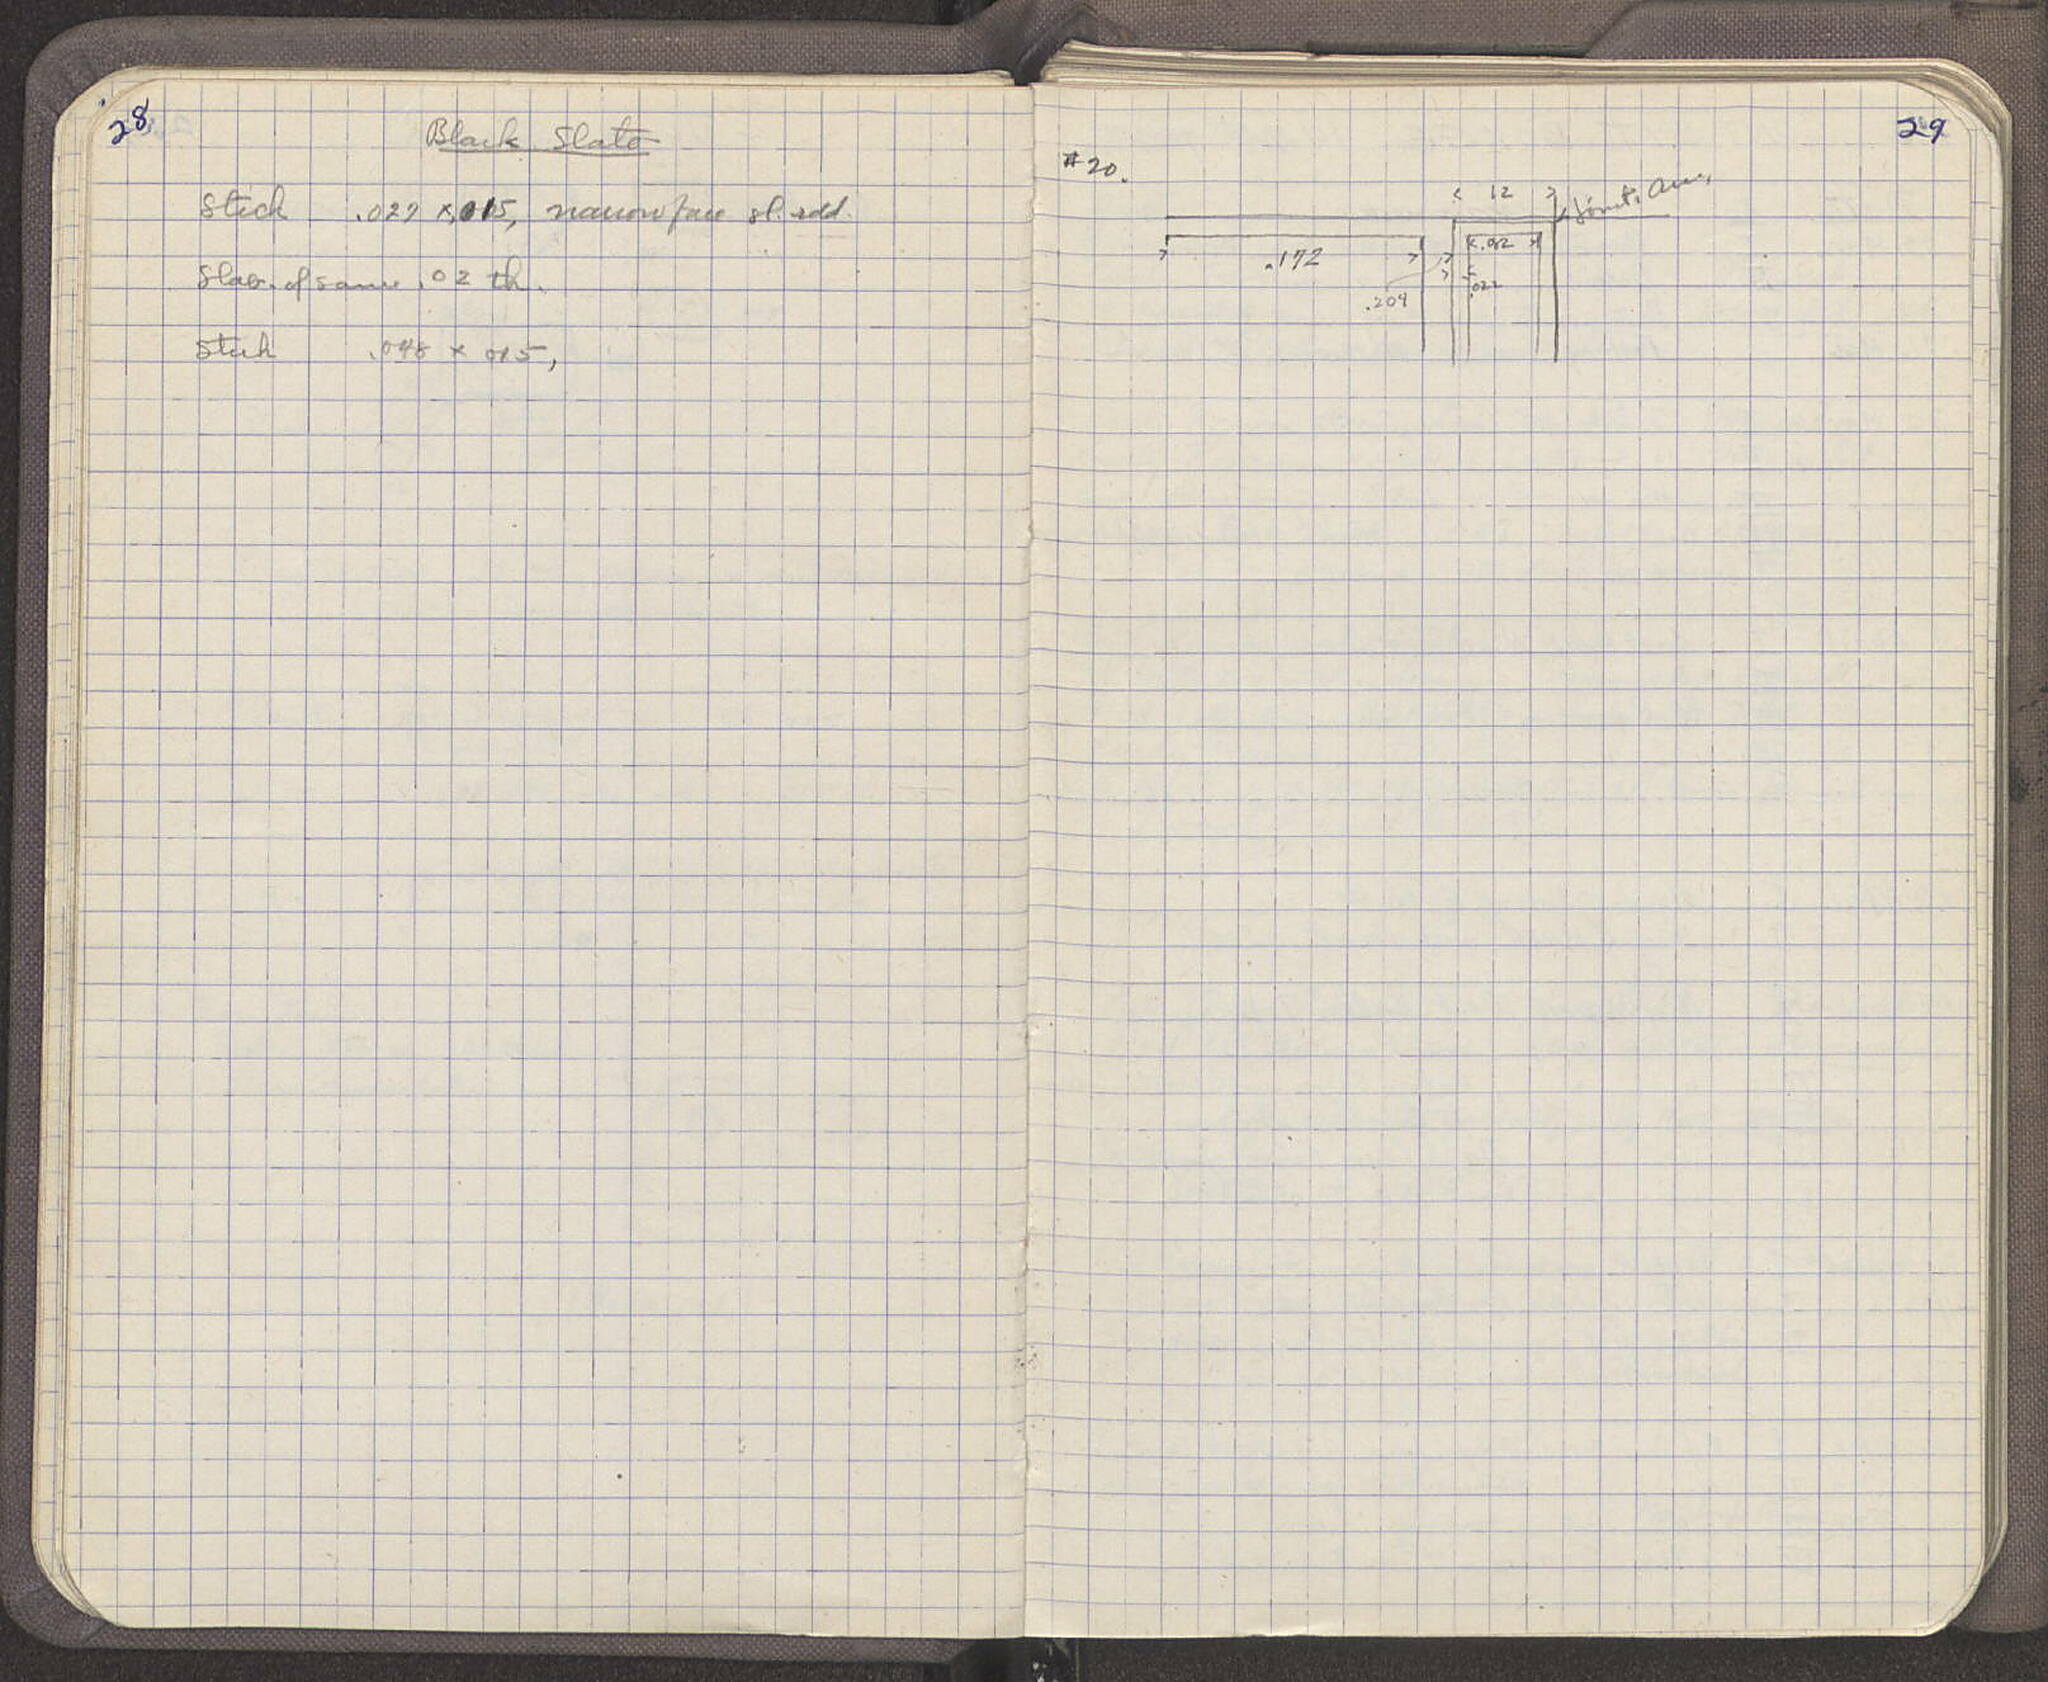 28
Black Slate
Stick .027 x .015, narrow face sl. rdd.
Slab of same .02 th.
Stick .048 x 015,
29
#20.
12
.082
.172
.204
.022